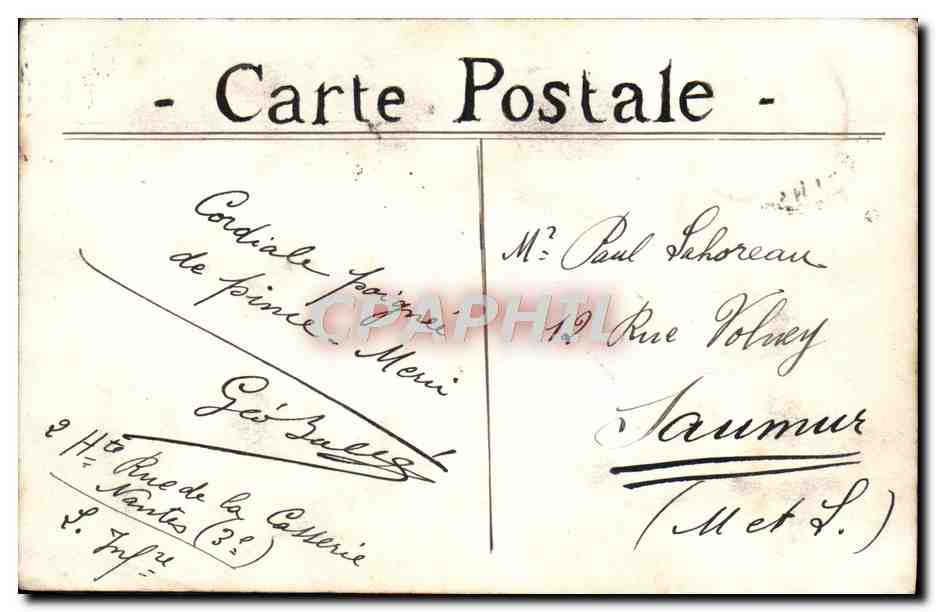 - Carte Postale -
Cordiale poignée
de pince - Merci
Géo
2 Hte Rue de la Casserie
Nantes (3e)
L. Infre
Mr Paul Sahoreau
12 Rue Volney
Saumur
(M et L.)
CPAPHIL